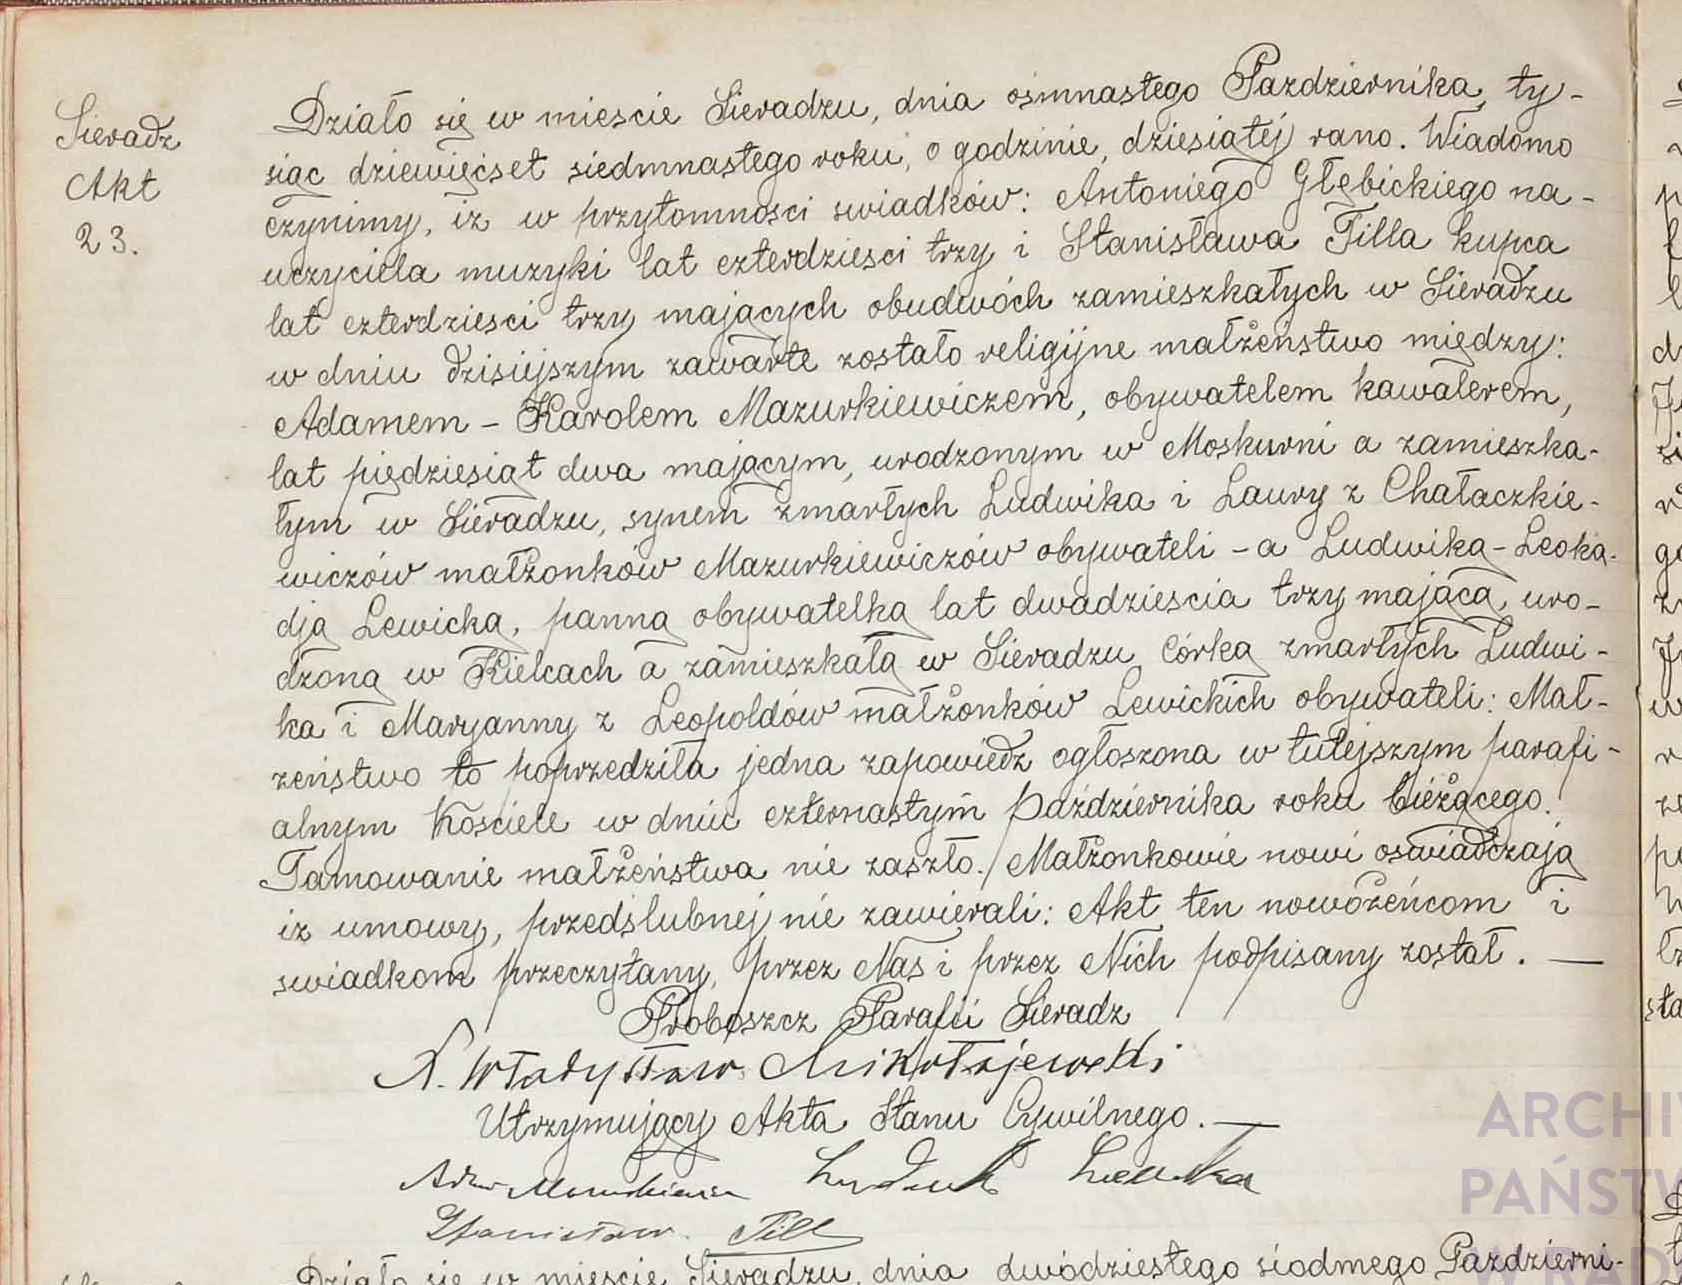 Sieradz
Akt
23.
Działo się w miescie Sieradzu, dnia osmnastego Pazdziernika, ty-
siąc dziewięćset siedmnastego roku, o godzinie, dziesiątej rano. Wiadomo
czynimy, iz w przytomnosci swiadków: Antoniego Głębickiego na-
uczyciela muzyki lat czterdziesci trzy i Stanisława Tilla kupca
lat czterdziesci trzy mających obudwóch zamieszkałych w Sieradzu
w dniu dzisiejszym zawarte zostało religijne małżeństwo między:
Adamem - Karolem Mazurkiewiczem, obywatelem kawalerem,
lat piędziesiąt dwa mającym, urodzonym w Moskurni a zamieszka-
łym w Sieradzu, synem zmarłych Ludwika i Laury z Chałaczkie-
wiczów małżonków Mazurkiewiczów obywateli - a Ludwiką - Leoka-
dją Lewicką, panną obywatelką lat dwadziescia trzy mającą, uro-
dzoną w Kielcach a zamieszkałą w Sieradzu córką zmarłych Ludwi-
ka i Maryanny z Leopoldów małżonków Lewickich obywateli: Mał-
zeństwo to poprzedziła jedna zapowiedz ogłoszona w tutejszym parafi-
alnym Kosciele w dniu czternastym październíka roku bieżącego.
Tamowanie małżeństwa nie zaszło. Małżonkowie nowi oswiadczają
iz umowy, przedslubnej nie zawierali: Akt ten nowożeńcom i
swiadkom przeczytany, przez Nas i przez Nich podpisany został. —
Proboszcz Parafii Sieradz
X. Władysław Mikołajewski
Utrzymujący Akta Stanu Cywilnego. —
Adam Mazurkiewicz Ludwika Lewicka
Stanisław Till
Działo się w miescie Sieradzu, dnia dwódziestego siodmego Pazdzierni-
ARCHIW
PAŃSTW